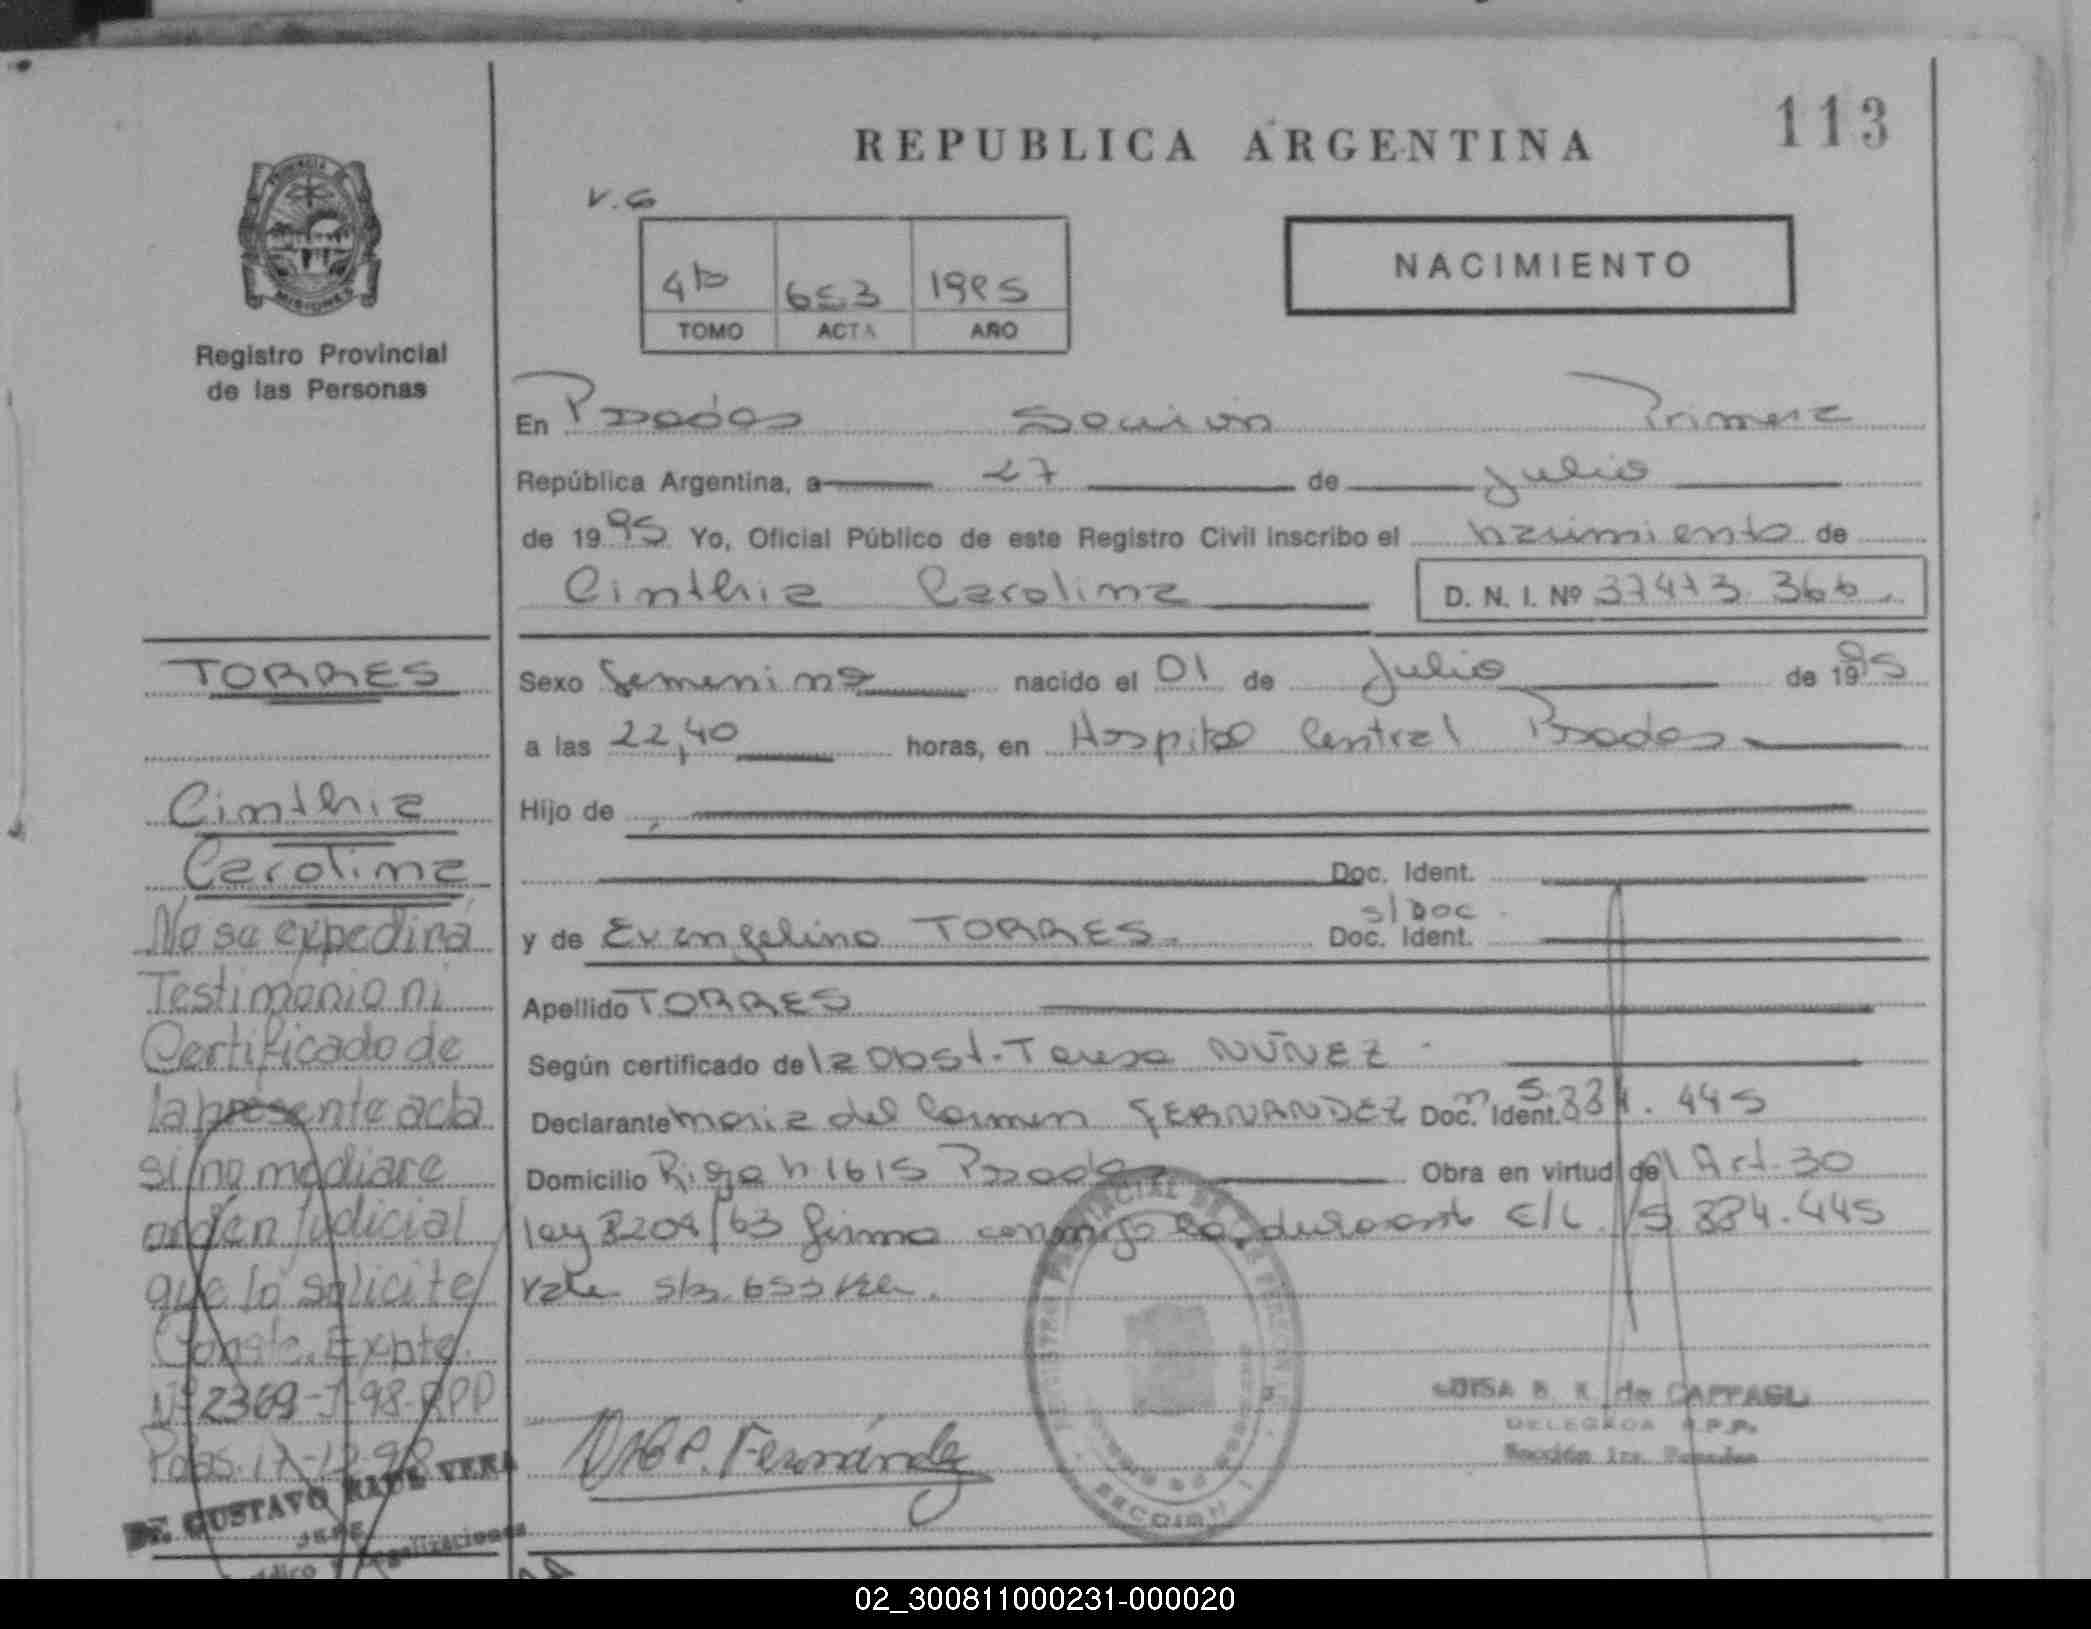 113
REPUBLICA ARGENTINA
V.G
NACIMIENTO
4to 653 1995
TOMO ACTA AÑO
PROVINCIA
MISIONES
Registro Provincial
de las Personas
En Posadas Sección Primera
República Argentina, a 27 de Julio
de 1995 Yo, Oficial Público de este Registro Civil inscribo el nacimiento de
Cinthia Carolina D. N. I. Nº 37473.366
Sexo femenino nacido el 01 de Julio de 1995
a las 22,40 horas, en Hospital Central Posadas
Hijo de
Doc. Ident.
s/Doc
y de Evangelina TORRES. Doc. Ident.
Apellido TORRES
Según certificado de la Obst. Teresa NUÑEZ
Declarante Maria del Carmen FERNANDEZ Doc. Ident. m 5.334.445
Domicilio n 1615 Posadas Obra en virtud del Art. 30
ley 8204/63 firma conmigo la declarante E/L. 5.334.445
vale s/b. 653 vale.
TORRES
Cinthia
Carolina
No se expedirá
Testimonio ni
Certificado de
la presente acta
si no mediare
orden Judicial
que lo solicite
Conste. Expte.
Nº 2369-J-98-RPP
Pdas. 17-12-98
GUSTAVO RAUL VERA
JEFE
Legalizaciones
Fernández
SECCION 1
LUISA de
DELEGADA R.P.P.
Sección 1ra. Posadas
02_300811000231-000020